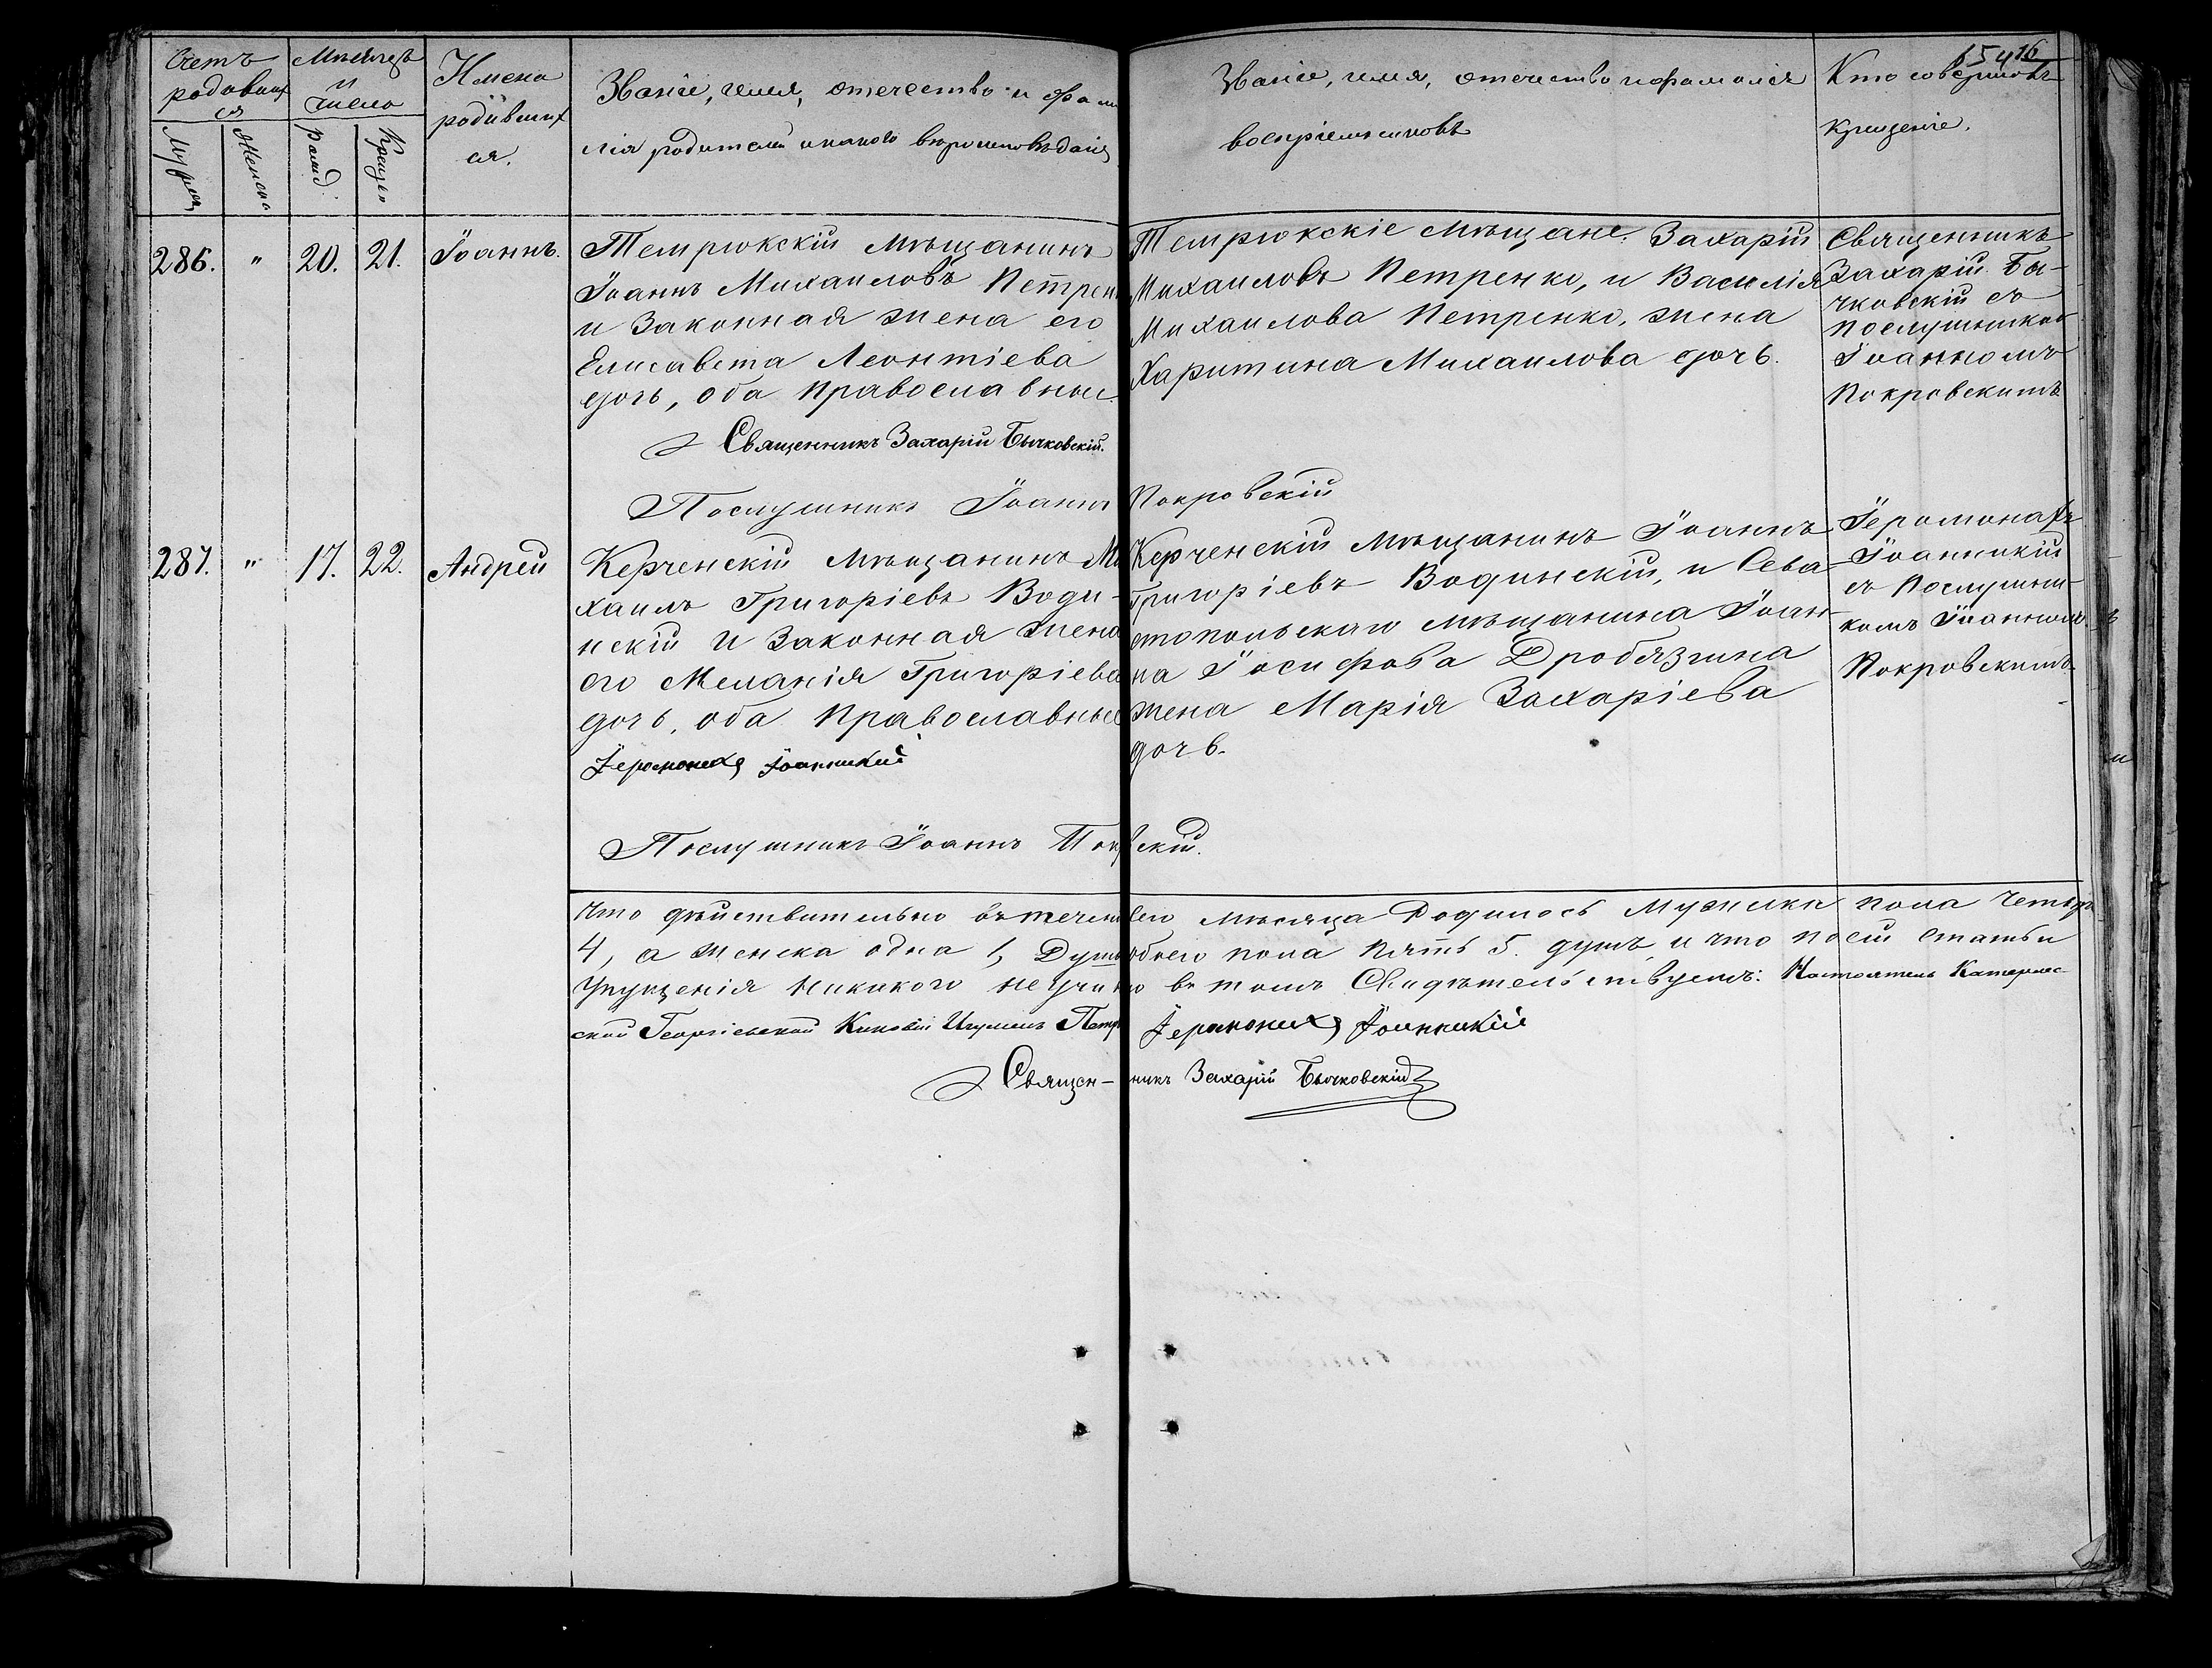 Счетъ родивших ся
Мужеск
Женска
Мѣсяцъ и число
рожд.
Крещен
Имена родивших ся.
Званіе, имя, отечество и фами
лія родителей и какого вѣроисповѣданія
Званіе, имя, отечество и фамилія
воспріемниковъ
Кто совершалъ
Крещеніе.
15416
286. " 20. 21. Іоаннъ.
Темрюкскій мѣщанинъ
Іоаннъ Михаиловъ Петрен
и Законная жена его
Елисавета Леонтіева
дочь, оба Православные.
Священникъ Захарій Бычковскій.
Темрюкскіе мѣщане: Захарій
Михаиловъ Петренко, и Василія
Михаилова Петренко, жена
Харитина Михаилова дочь.
Священникъ
Захарій Бы-
чковскій съ
послушникомъ
Іоанномъ
Покровскимъ
Послушникъ Іоаннъ Покровскій
287. " 17. 22. Андрей
Керченскій мѣщанинъ Ми
хаилъ Григоріевъ Води-
нскій и Законная жена
его Меланія Григоріева
дочь, оба Православные
Іеромонахъ Іоанникій
Керченскій мѣщанинъ Іоаннъ
Григоріевъ Водинскій, и Сева-
стопольскаго мѣщанина Іоан-
на Іосифова Дробязгина
жена Марія Захаріева
дочь.
Іеромонахъ
Іоанникій
съ Послушни-
комъ Іоанномъ
Покровскимъ
Послушникъ Іоаннъ Пок вскій.
Что дѣйствительно въ течен сего мѣсяца Родилось Мужска пола Четыре
4, а женска одна 1, Душъ обоего пола пять 5. душъ, и что по сей статьи
упущенія никакого не учин о въ томъ Свидѣтельствуемъ: Настоятель Катерлес-
ской Георгіевской Киновіи Игуменъ Петр Іеромонахъ Іоанникій
Священ- никъ Захарій Бычковскій